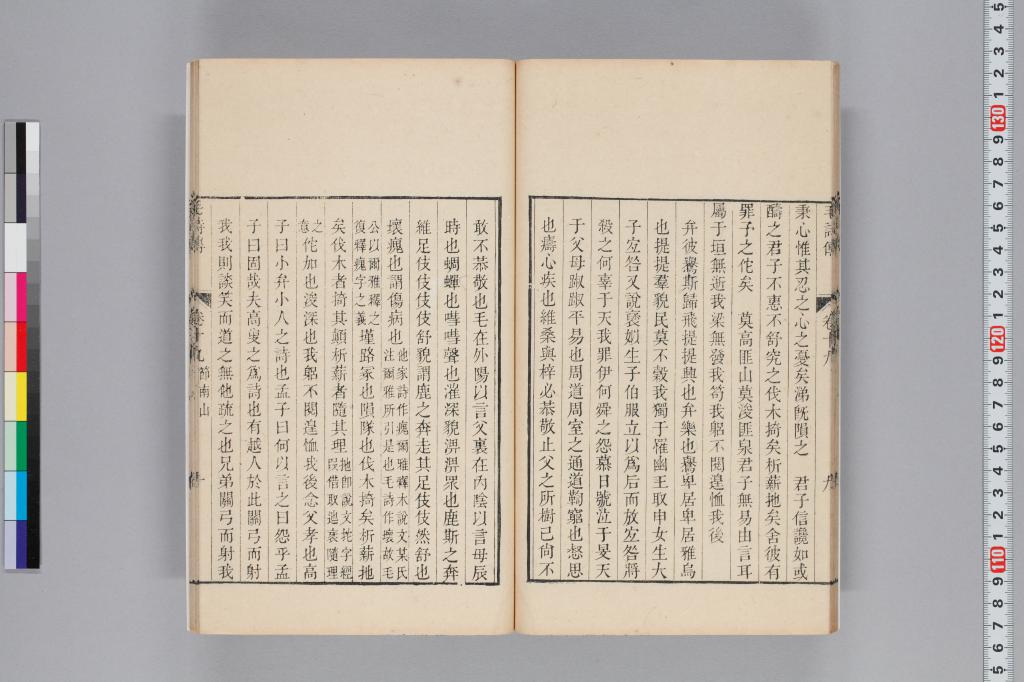 毛詩傳
卷十九
九
秉心惟其忍之心之憂矣涕旣隕之　君子信讒如或
醻之君子不惠不舒究之伐木掎矣析薪扡矣舍彼有
罪予之佗矣　莫高匪山莫浚匪泉君子無易由言耳
屬于垣無逝我梁無發我笱我躬不閱遑恤我後
弁彼鸒斯歸飛提提興也弁樂也鸒卑居卑居雅烏
也提提羣貌民莫不穀我獨于罹幽王取申女生大
子宜咎又說襃姒生子伯服立以爲后而放宜咎將
殺之何辜于天我罪伊何舜之怨慕日號泣于旻天
于父母踧踧平易也周道周室之通道鞫窮也惄思
也擣心疾也維桑與梓必恭敬止父之所樹己尙不
敢不恭敬也毛在外陽以言父裏在內陰以言母辰
時也蜩蟬也嘒嘒聲也漼深貌淠淠眾也鹿斯之奔
維足伎伎伎伎舒貌謂鹿之奔走其足伎伎然舒也
壞瘣也謂傷病也他家詩作瘣爾雅釋木說文某氏注爾雅所引是也毛詩作壞故毛
公以爾雅釋之復釋瘣字之義墐路冢也隕隊也伐木掎矣析薪扡
矣伐木者掎其顛析薪者隨其理扡卽說文扡字經叚借取迆衺隨理
之意佗加也浚深也我躬不閱遑恤我後念父孝也高
子曰小弁小人之詩也孟子曰何以言之曰怨乎孟
子曰固哉夫高叟之爲詩也有越人於此關弓而射
我我則談笑而道之無他疏之也兄弟關弓而射我
毛詩傳
卷十九
節南山